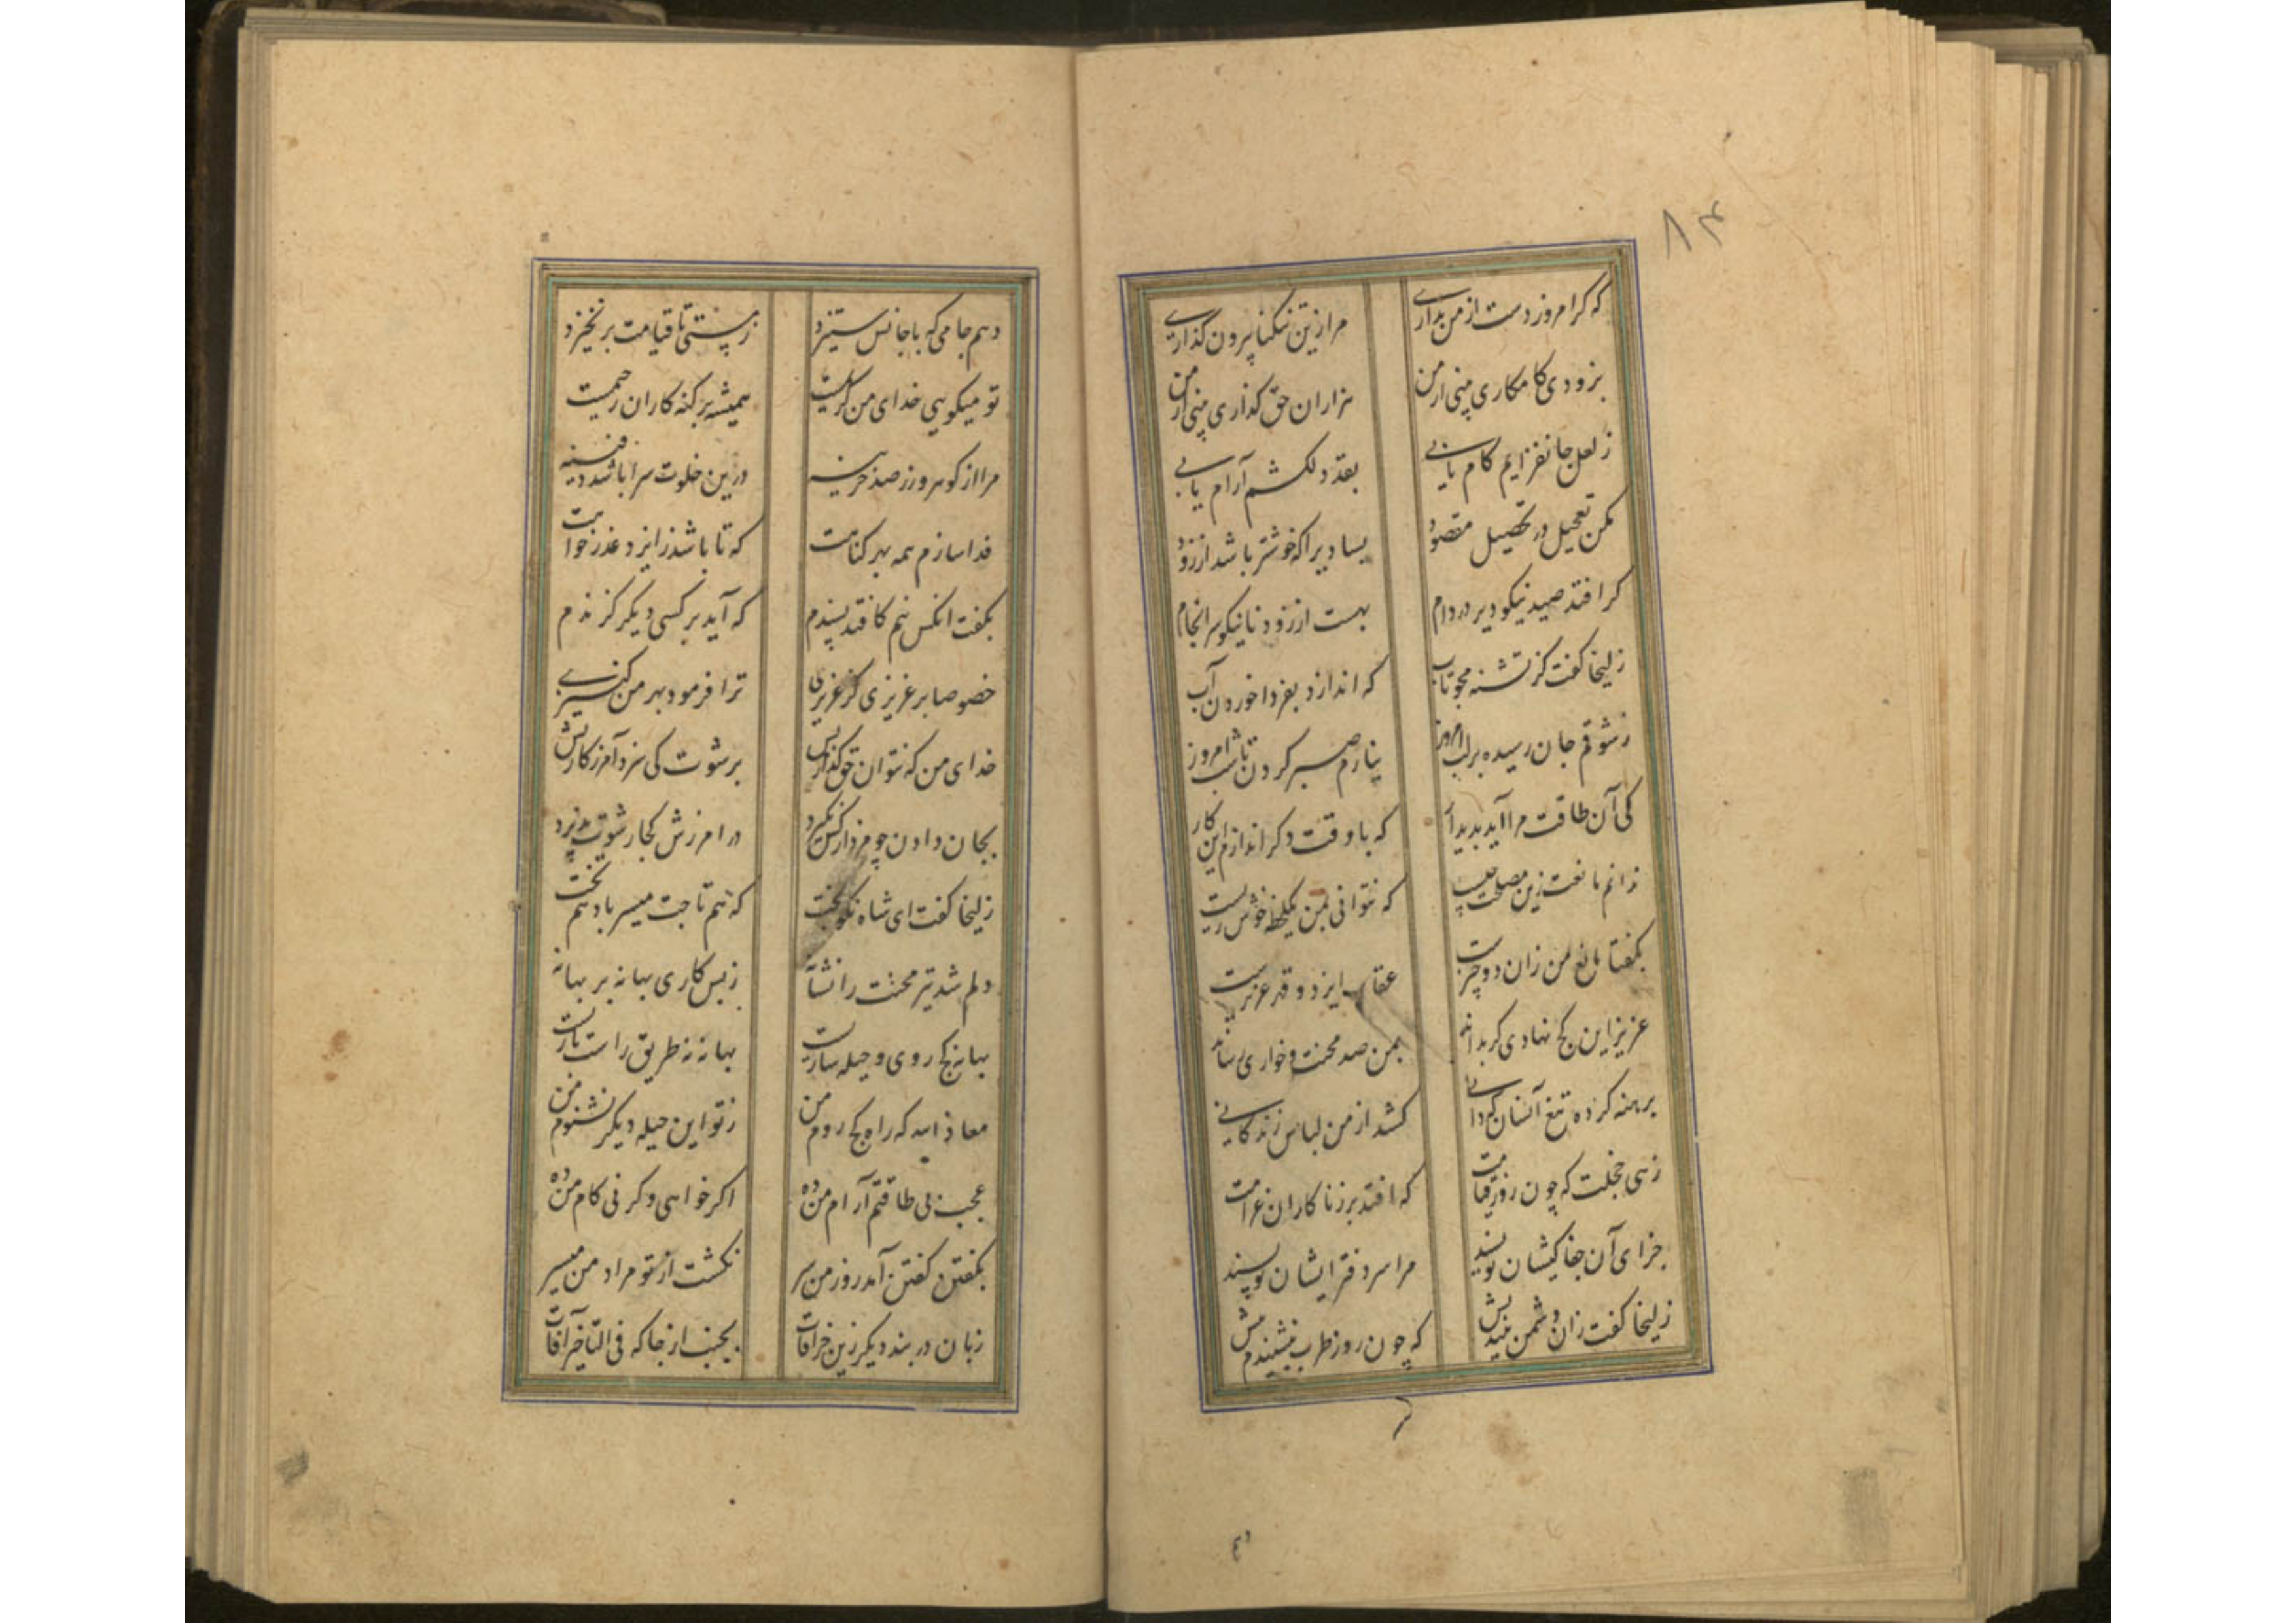 ۸۴
که کر امروز دست از من بداری مرا زین تنکنا بیرون کذاری
بزودی کامکاری بینی از من هزاران حق کذاری بینی از من
ز لعل جانفزایم کام یابی بقد دلکشم آرام یابی
مکن تعجیل در تحصیل مقصود بسا دیرا که خوشتر باشد از زود
کر افتد صید نیکو دیر در دام بهست از زود نا نیکو سرانجام
زلیخا کفت کز تشنه مجو تاب که اندازد بفردا خوردن آب
ز شوقم جان رسیده بر لب امروز نیارم صبر کردن تا شب امروز
کی آن طاقت مرا آید بدیدار که با وقت دکر اندازم این کار
ندانم مانعت زین مصلحت چیست که نتوانی بمن یکلحظه خوش زیست
بکفتا مانع من زان دو چیزست عقاب ایزد و قهر عزیزست
عزیز این کج نهادی کر بداند بمن صد محنت و خواری رساند
برهنه کرده تیغ آنسان که دانی کشد از من لباس زندکانی
زهی خجلت که چون روز قیامت که افتد بر زناکاران غرامت
جزای آن جفاکیشان نویسند مرا سر دفتر ایشان نویسند
زلیخا کفت زان دشمن میندیش که چون روز طرب بنشیندم پیش
دهم جامی که با جانش ستیزد ز مستی تا قیامت بر نخیزد
تو میکویی خدای من کریمست همیشه بر کنه کاران رحیمست
مرا از کوهر و زر صد خزینه درین خلوت سرا باشد دفینه
فدا سازم همه بهر کناهت که تا باشد ز ایزد عذر خواهت
بکفت آنکس نیم کافتد پسندم که آید بر کسی دیکر کزندم
خصوصا بر عزیزی کز عزیزی ترا فرمود بهر من کنیزی
خدای من که نتوان حق کذاریش برشوت کی سزد آمرزکاریش
بجان دادن چو مزد از کس نکیرد در امرزش کجا رشوت پذیرد
زلیخا کفت ای شاه نکوبخت که هم تاجت میسر باد هم تخت
دلم شد تیر محنت را نشانه ز بس کاری بهانه بر بهانه
بهانه کج روی و حیله سازیست بهانه نه طریق راست بازیست
معاذ الله که راه کج روم من ز تو این حیله دیکر نشنوم من
عجب بی طاقتم آرام من ده اکر خواهی و کر نی کام من ده
بکفتن کفتن آمد روز من سر نکشت از تو مراد من میسر
زبان در بند دیکر زین خرافات بجنب از جا که فی التاخیر آفات